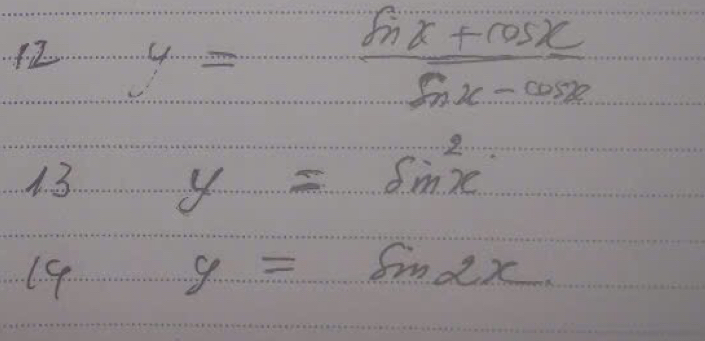 12 y = \frac{\sin x + \cos x}{\sin x - \cos x}
13 y = \sin^2 x
14 y = \sin 2x.